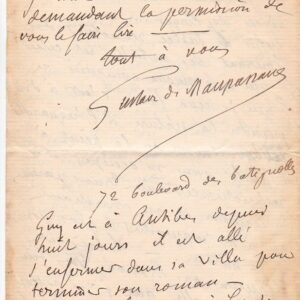 demandant la permission de
vous le faire lire —
tout à vous
Gustave de Maupassant
72 boulevard des batignolles
Guy est à Antibes depuis
huit jours il est allé
s'enfermer dans sa villa pour
terminer son roman